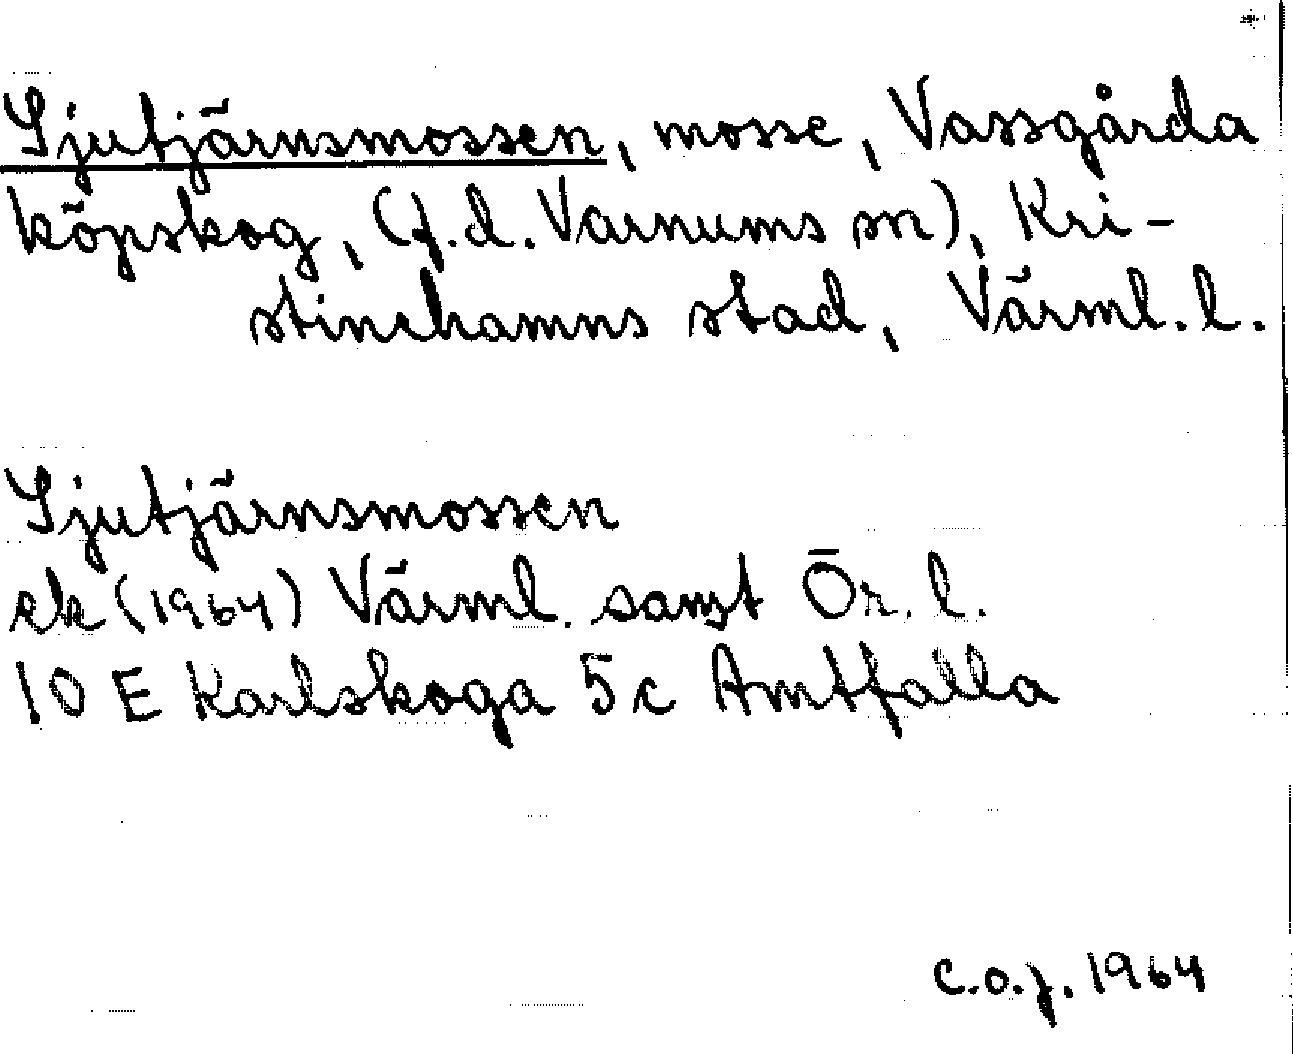 Sjutjärnsmossen, mosse, Vassgårda
köpskog, (f.d. Varnums sn), Kri-
stinehamns stad, Värml. l.
Sjutjärnsmossen
ek (1964) Värml. samt Ör. l.
10 E Karlskoga 5 c Amtfalla
C.O.J. 1964